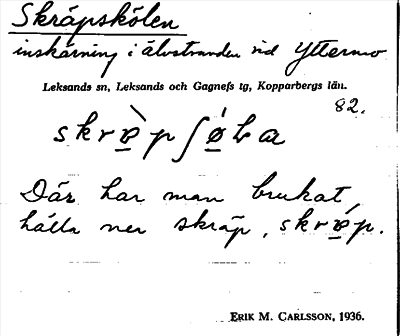 Skräpskölen
inskärning i älvstranden vid Yttermo
Leksands sn, Leksands och Gagnefs tg, Kopparbergs län.
82.
Där har man brukat
hälla ner skräp,
ERIK M. CARLSSON, 1936.